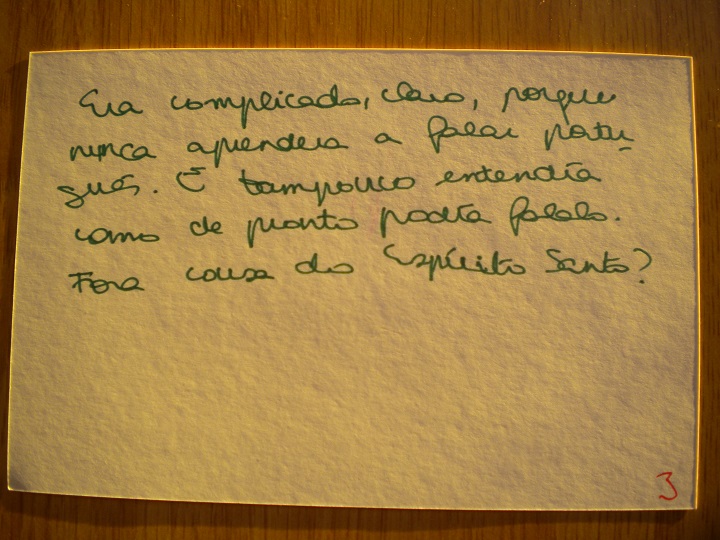 Era complicado, claro, porque
nunca aprendera a falar portu-
gués. E tampouco entendía
como de pronto podía falalo.
Fora cousa do Espírito Santo?
3